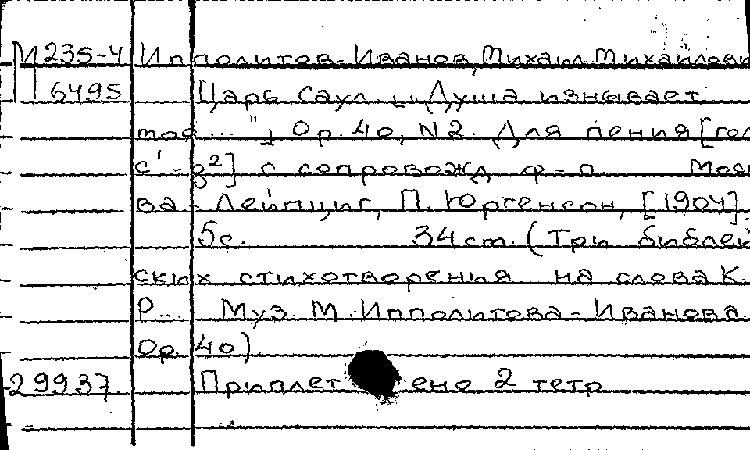 М235-4 Ипполитов-Иванов, Михаил Михайлови
П 6495 Царь Саул „Душа изнывает
моя ..." Ор. 40, N2. Для пения [гол
с¹-g²] с сопровожд. ф-п Моск
ва - Лейпциг, П. Юргенсон, [1904].
5с. 34 см. (Три библей
ских стихотворения на слова К.
Р... Муз М. Ипполитова-Иванова
Ор. 40)
29937 Приплет ено 2 тетр